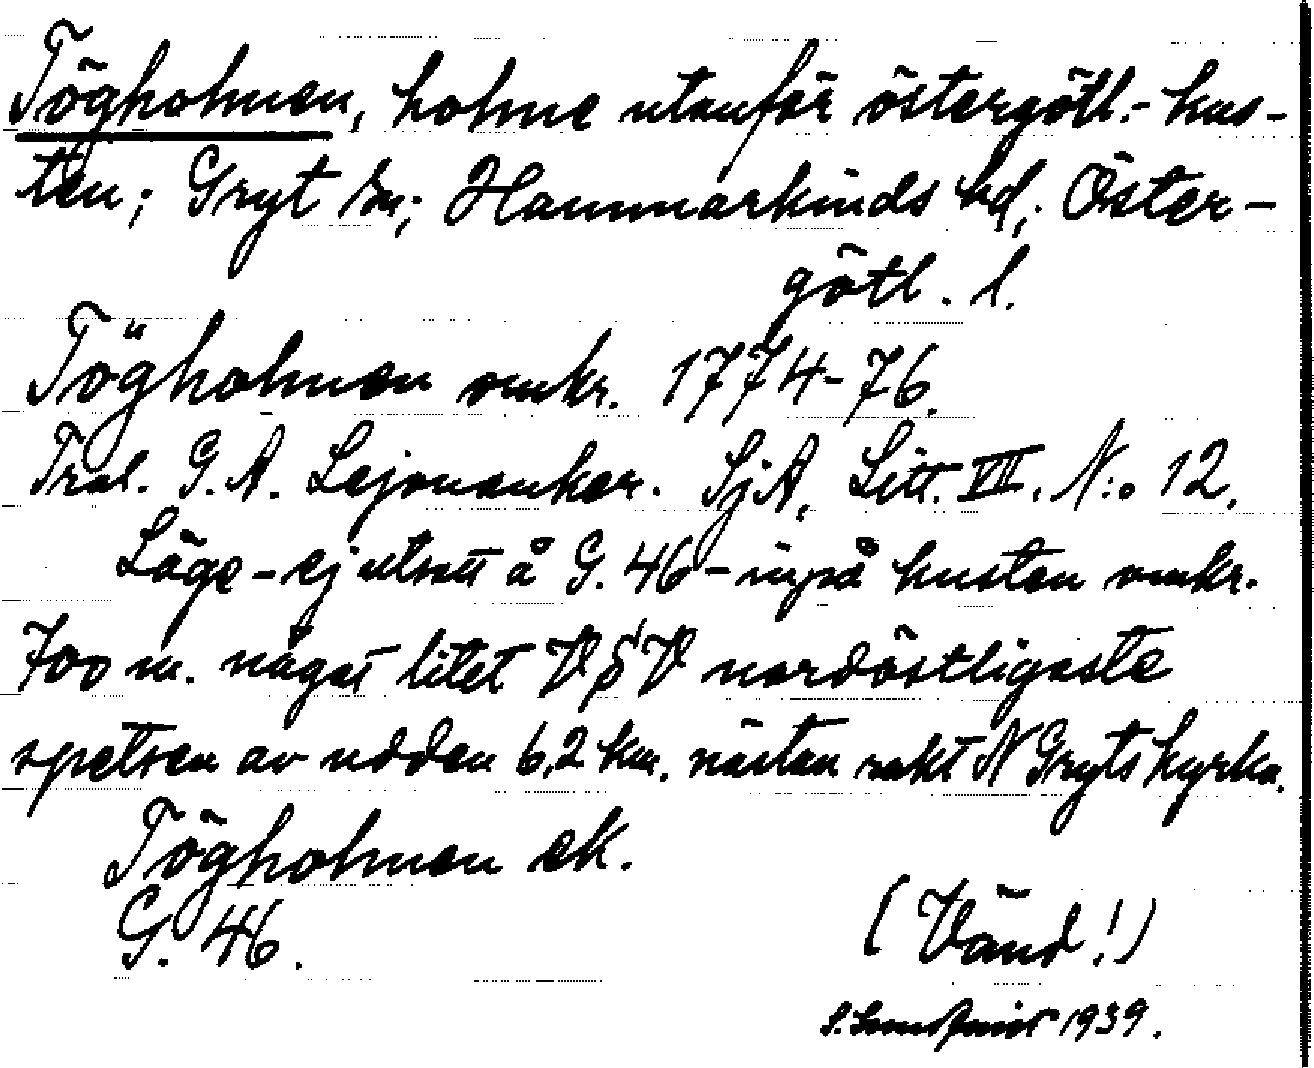 Tögholmen, holme utanför östergötl.- kus-
ten; Gryt sn; Hammarkinds hd; Öster-
götl. l.
Tögholmen omkr. 1774-76.
Tral. G. A. Lejonanker. SjA, Litt. VII. N:o 12.
Läge - ej utsatt å G. 46 - inpå kusten omkr.
700 m. något litet V§V nordöstligaste
spetsen av udden 6,2 km. nästan rakt N Gryts kyrka.
Tögholmen ek.
G. 46.
(Vänd!)
S. Lundqvist 1939.